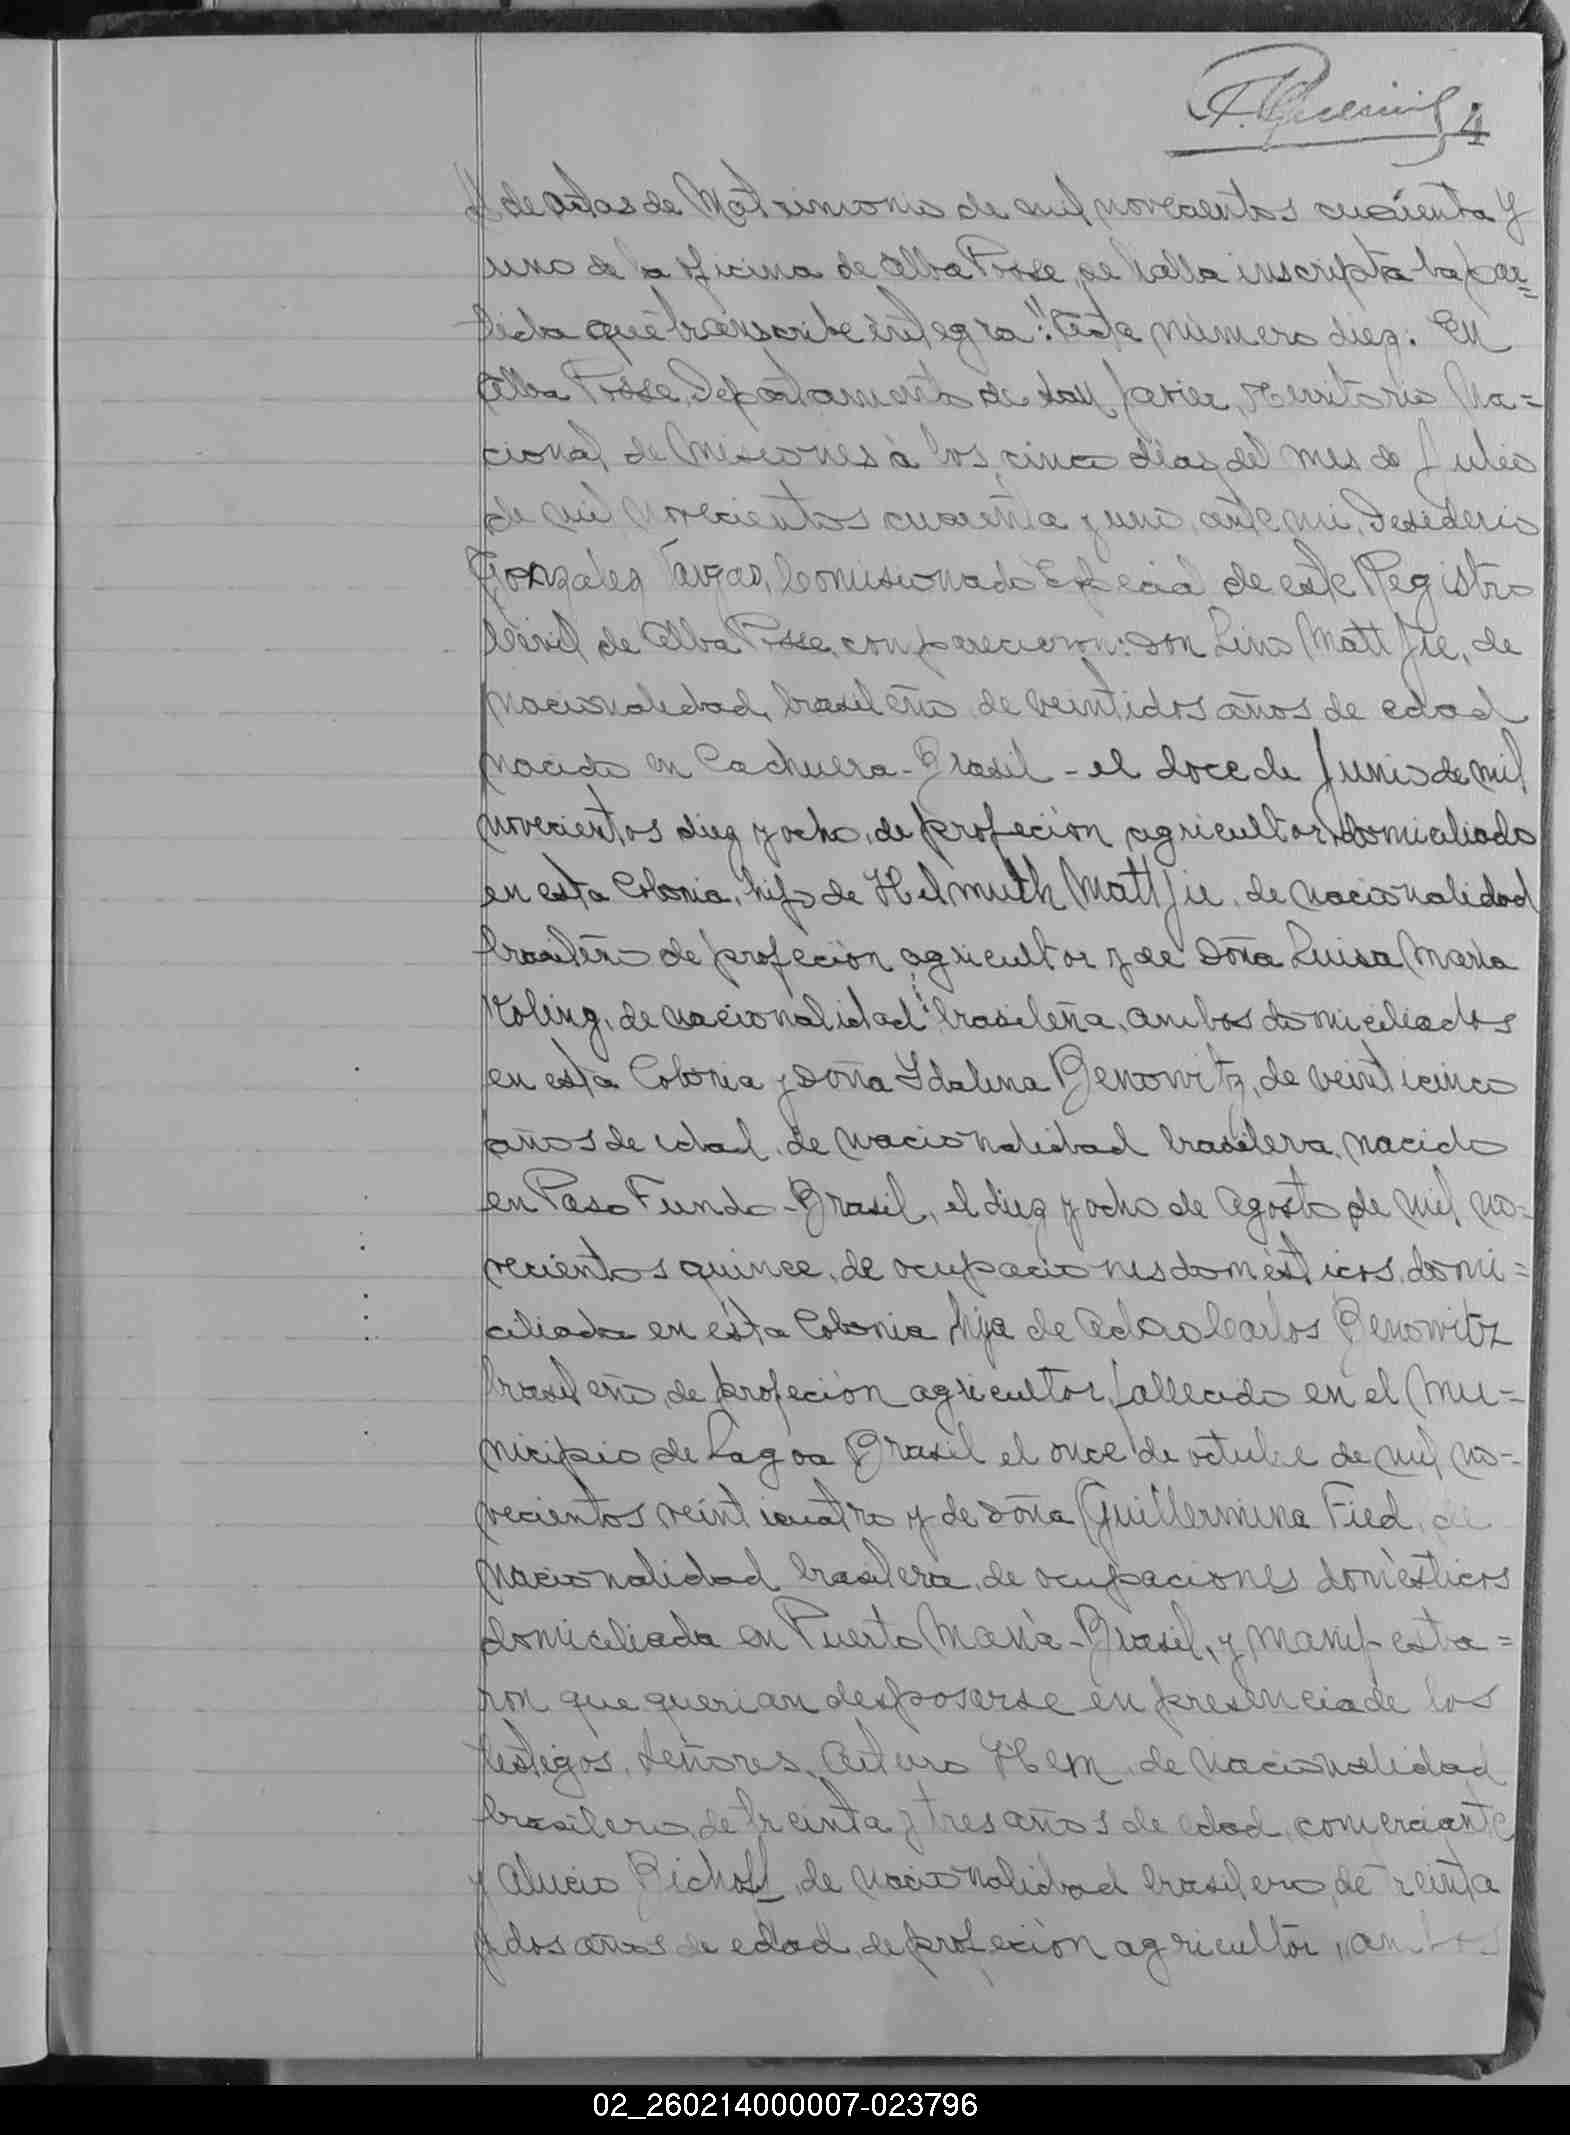 4
de actas de Matrimonio de mil novecientos cuarenta y
uno de la oficina de Alba Posse, se halla inscripta la par=
tida que transcribe íntegra: "Acta número diez. En
Alba Posse, Departamento de San Javier, Territorio Na=
cional de Misiones á los cinco días del mes de Julio
de mil novecientos cuarenta y uno, ante mi, Desiderio
Gonzalez Vargas, Comisionado Especial de este Registro
Civil de Alba Posse, comparecieron: Don Lino Mattjie, de
nacionalidad brasileño de veintidos años de edad
nacido en Cachuera - Brasil - el doce de Junio de mil
novecientos diez y ocho, de profeción agricultor, domiciliado
en esta Colonia, hijo de Helmuth Mattjie, de nacionalidad
brasileño de profeción agricultor y de Doña Luisa María
Koling, de nacionalidad brasileña, ambos domiciliados
en esta Colonia y Doña Ydalina Benowitz, de veinticinco
años de edad, de nacionalidad brasilera, nacido
en Paso Fundo - Brasil, el diez y ocho de Agosto de mil no=
vecientos quince, de ocupaciones domésticos, domi=
ciliada en ésta Colonia hija de Adao Carlos Benowitz
brasileño, de profeción agricultor, fallecido en el Mu=
nicipio de Lagoa Brasil el once de octubre de mil no=
vecientos veinticuatro y de doña Guillermina Fied, de
nacionalidad brasilera, de ocupaciones domésticos
domiciliada en Puerto María - Brasil, y manifesta=
ron que querian desposarse en presencia de los
testigos, Señores, Arturo Hem, de nacionalidad
brasilero, de treinta y tres años de edad, comerciante
y Alucio Bichoff, de nacionalidad brasilero, de treinta
y dos años de edad, de profeción agricultor, ambos
02_260214000007-023796